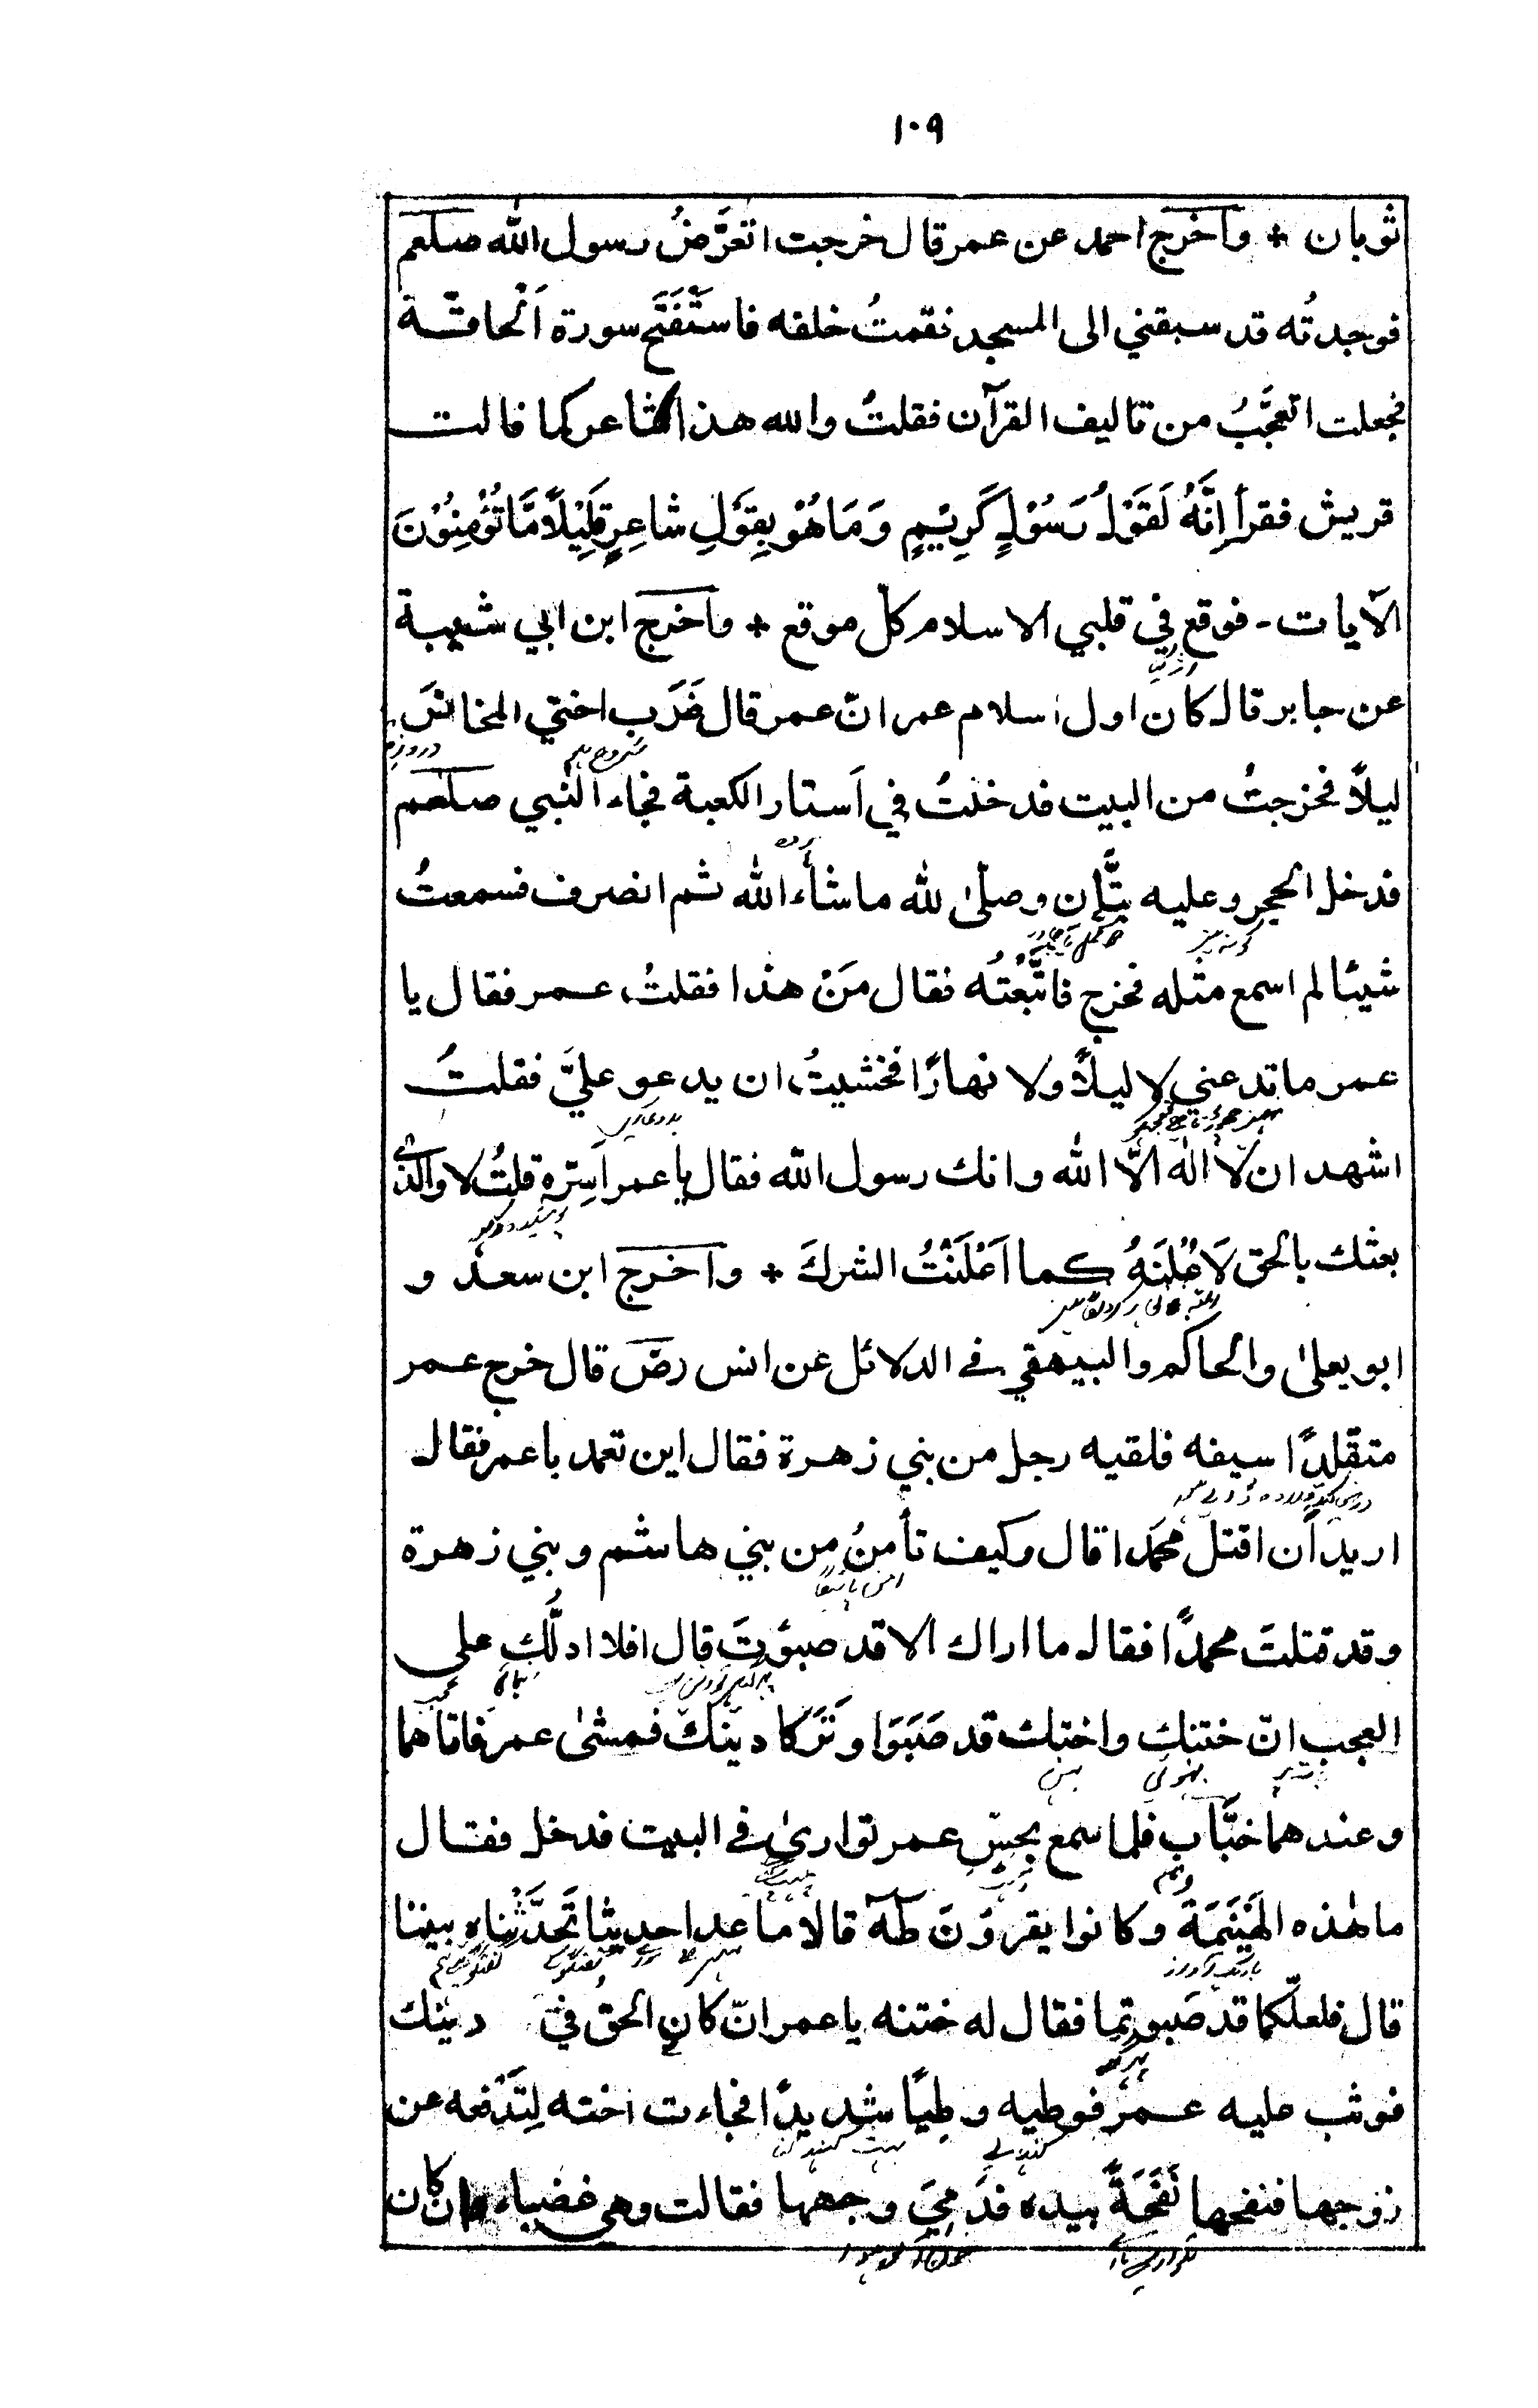 ١٠٩
ثوبان * واخرج احمد عن عمر قال خرجت اتعرَّضُ رسول الله صلعم
فوجدتُه قد سبقني الى المسجد فقمتُ خلفه فاستَفْتَح سورة اَلْحاقّة
فجعلت اتعجَّبُ من تاليف القرآن فقلتُ والله هذا شاعر كما قالت
قريش فقرأ اِنَّهُ لَقَوْلُ رَسُوْلٍ كَرِيْمٍ وَمَا هُوْ بِقَوْلِ شاعِرٍ قَلِيْلاً مَّا تُؤْمِنُوْنَ
الآيات - فوقع في قلبي الاسلام كلّ موقع * واخرج ابن ابي شيبة
عن جابر قال كان اول اسلام عمر انّ عمر قال ضَرَب اختي المخاضَ
ليلاً فخرجتُ من البيت فدخلتُ في اَستار الكعبة فجاء النبي صلعم
فدخل الحجر وعليه بتَّان وصلّىٰ لله ما شاء الله ثم انصرف فسمعتُ
شيئا لم اسمع مثله فخرج فاتَّبَعْتُه فقال مَنْ هذا فقلتُ عمر فقال يا
عمر ما تدعني لا ليلاً ولا نهارًا فخشيتُ ان يدعو عليَّ فقلتُ
اشهد ان لا اله الّا الله وانك رسول الله فقال يا عمر اَسِتره قلتُ لا والّذي
بعثك بالحق لَاُعْلِنَنَّهُ كما اَعْلَنْتُ الشرك * واخرج ابن سعد و
ابو يعلىٰ والحاكم والبيهقي في الدلائل عن انس رضّ قال خرج عمر
متقلّدًا سيفه فلقيه رجل من بني زهرة فقال اين تعمد يا عمر فقال
اريد ان اقتل محمّدا قال وكيف تأمنُ من بني هاشم وبني زهرة
وقد قتلتَ محمدًا فقال ما اراك الا قد صبؤتَ قال افلا ادلُّك على
العجب انّ ختنك واختك قد صَبَوَا وتَرَكا دينك فمشىٰ عمر فاتاهما
وعندهما خبَّاب فلما سمع بحسِّ عمر توارىٰ في البيت فدخل فقال
ما هٰذه الهَيْنَمَةَ وكانوا يقرؤن طٰهٰ قالا ما عدا حديثا تَحدَّثْناه بيننا
قال فلعلّكما قد صَبوتما فقال له ختنه يا عمر انّ كان الحقُّ في دينك
فوثب عليه عمر فوطيه وطيًا شديدًا فجاءت اخته لِتَدْفعه عن
زوجها فنفحها نَفَحَةً بيده فدَمِيَ وجهها فقالت وهي غضباء وان كان